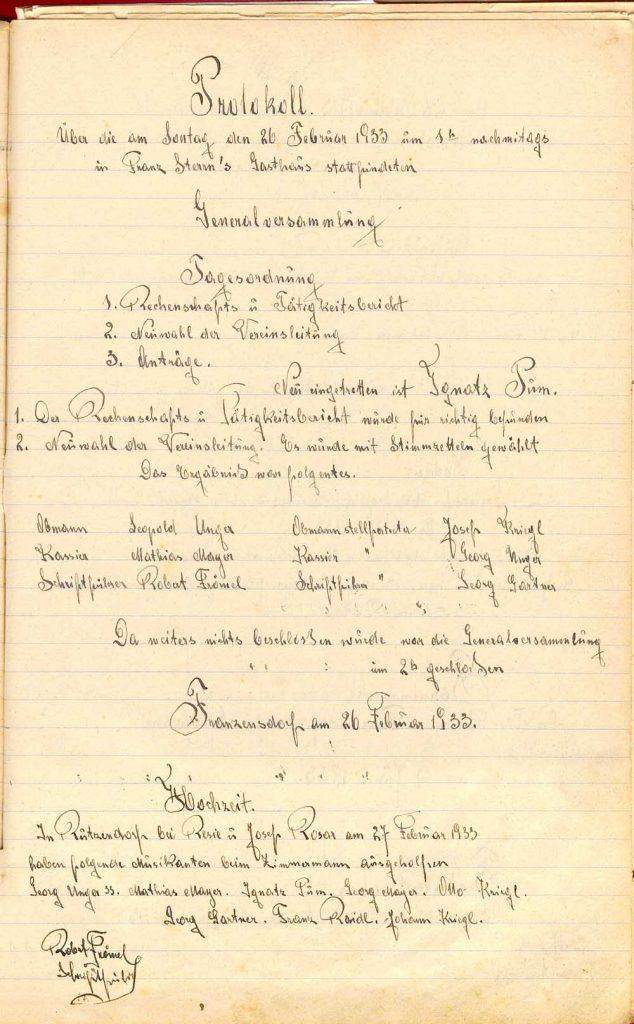 Protokoll.
Über die am Sontag den 26 Februar 1933 um 1h nachmitags
in Franz Stern's Gasthaus stattfundeten
Generalversammlung
Tagesordnung
1. Rechenschafts u Tätigkeitsbericht
2. Neuwahl der Vereinsleitung
3. Anträge.
Neu eingetretten ist Ignatz Püm.
1. Der Rechenschafts u Tätigkeitsbericht wurde für richtig befunden
2. Neuwahl der Vereinsleitung. Es wurde mit Stimmzetteln gewählt
Das Ergäbniß war folgentes.
Obmann Leopold Unger Obmannstellfertreter Josef Kriegl
Kassier Mathias Mayer Kassier " Georg Unger
Schriftführer Robert Frömel Schriftführer " Georg Gartner
Da weiters nichts beschloßen wurde war die Generalversamlung
um 2h geschloßen
Franzensdorf am 26 Februar 1933.
Hochzeit.
In Rutzendorf bei Resie u Josef Rosar am 27 Februar 1933
haben folgende Musikanten beim Zimmermann ausgeholfen
Georg Unger ss. Mathias Mayer. Ignatz Püm. Georg Mayer. Otto Kriegl.
Georg Gartner. Franz Raidl. Johann Kriegl.
Robert Frömel
Schriftführer